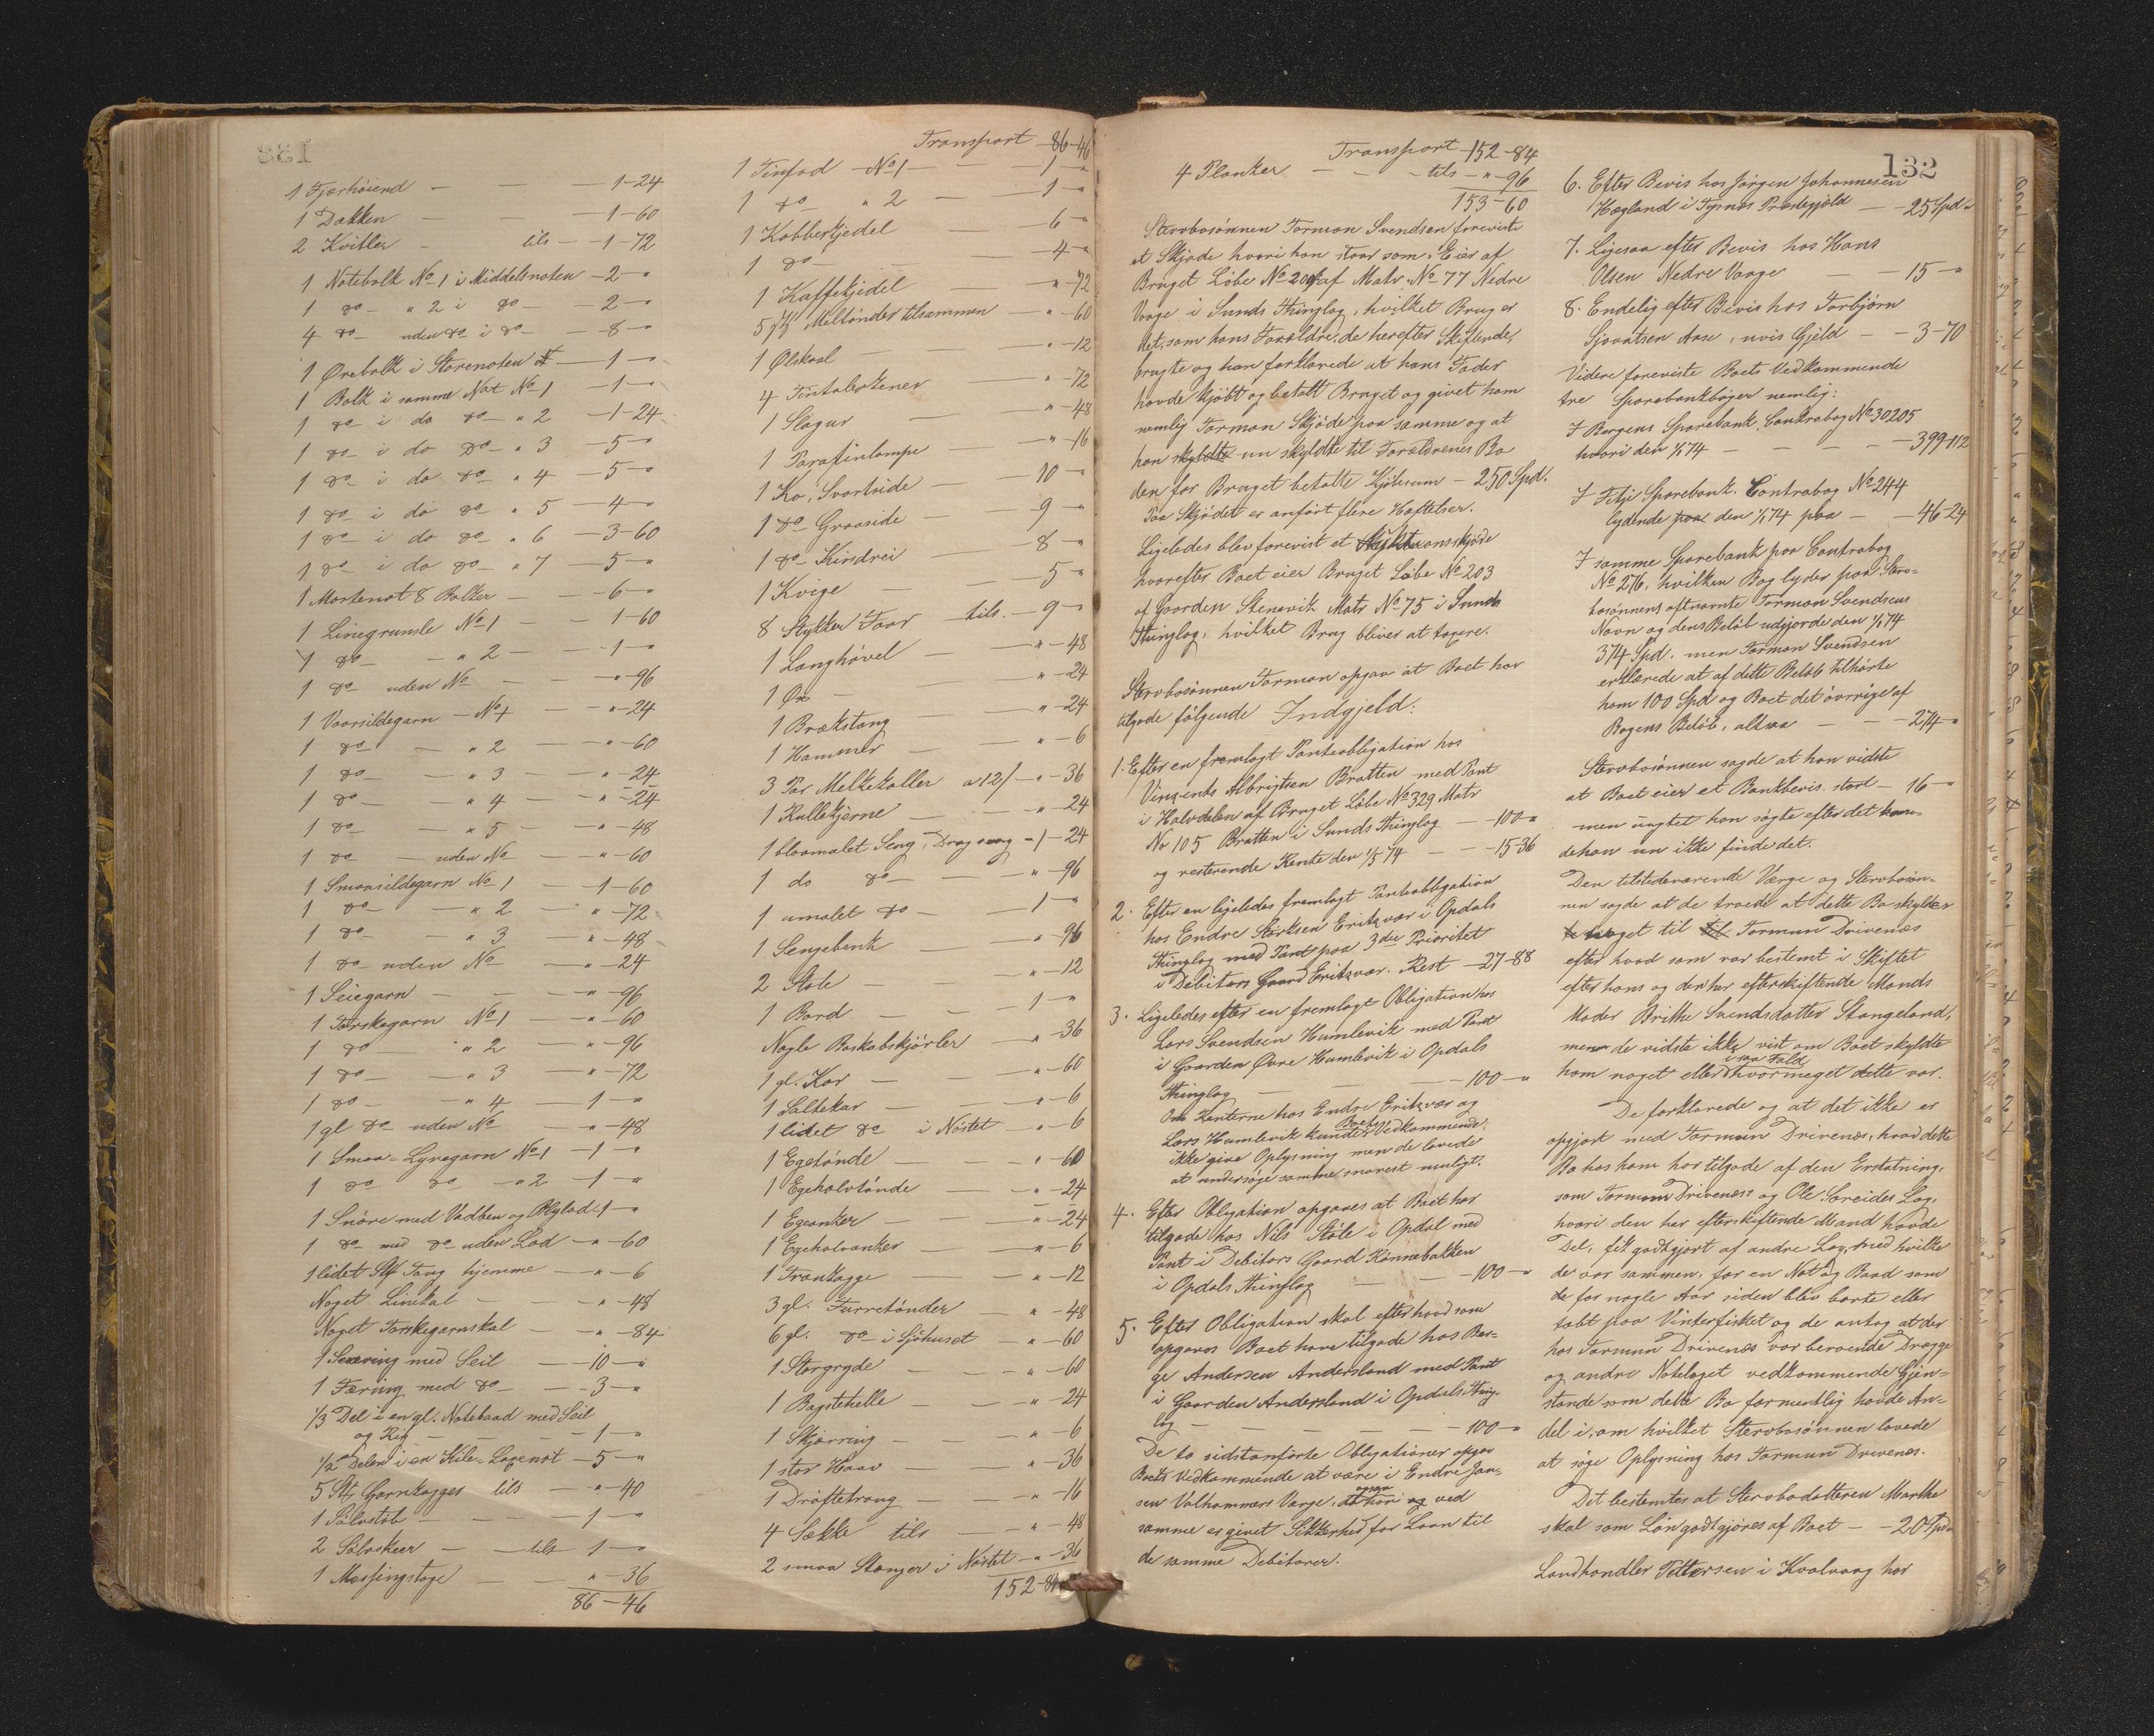 1 Fjærhöiend — — — 1-24
1 Dækken — — — 1-60
2 Kvitler — tils — 1-72
1 Notebolk No 1 i Middelsnoten — 2-"
1 do " 2 i do — 2-"
4 do uden do i do — 8-"
1 Ørebolk i Storenoten — 1-"
1 Bolk i samme Not No 1 — 1-"
1 do i do do " 2 — 1-24
1 do i do do " 3 — 5-"
1 do i do do " 4 — 5-"
1 do i do do " 5 — 4-"
1 do i do do " 6 — 3-60
1 do i do do " 7 — 5-"
1 Mortenot 8 Bolker — — 6-"
1 Linegrumle No 1 — — 1-60
1 do — " 2 — — 1-"
1 do uden No — — "-96
1 Vaarsildegarn — No 1 — "-24
1 do — " 2 — "-60
1 do — " 3 — "-24
1 do — " 4 — "-24
1 do — " 5 — "-48
1 do — uden No — "-60
1 Smaasildegarn No 1 — 1-60
1 do — " 2 — "-72
1 do — " 3 — "-48
1 do uden No — "-24
1 Seiegarn — — "-96
1 Torskegarn No 1 — "-60
1 do — " 2 — "-96
1 do — " 3 — "-72
1 do — " 4 — 1-"
1 gl do uden No — "-48
1 Smaa-Lyregarn No 1 — 1-"
1 do do — " 2 — 1-"
1 Snöre med Vadben og Blylod — 1-"
1 do med do uden Lod — "-60
1 lidet Stk Toug hjemme — "-6
Noget Linekal — — "-48
Noget Torskegarnskal — "-84
1 Sexæring med Seil — 10-"
1 Færing med do — 3-"
1/3 Del i en gl. Notebaad med Seil
og Rig — — — 1-"
1/2 Delen i en Kile-Laxenot — 5-"
5 Stk Garnkagger tils — "-40
1 Sölvstöb — — — 1-"
2 Sölvskeer — tils 1-"
1 Messingstage — — "-36
86-46
Transport 86-46
1 Tinfad — No 1 — — 1-"
1 do " 2 — 1-"
1 Kobberkjedel — 6-"
1 do — 4-"
1 Kaffekjedel — "-72
5 Stk Meltönder tilsammen — "-60
1 Ölskaal — "-12
4 Tintalerkener — "-72
1 Slagur — "-48
1 Parafinlampe — "-16
1 Ko, Svartside — 10-"
1 do Graaside — 9-"
1 do Kindrei — 8-"
1 Kvige — 5-"
8 Stykker Faar — tils. — 9-"
1 Langhövel — "-48
1 Øx — "-24
1 Brækstang — "-24
1 Hammer — "-6
3 Par Melkekoller a 12/ — "-36
1 Rullekjerne — "-24
1 blaamalet Seng, Dragseng — 1-24
1 do do — "-96
1 umalet do — 1-"
1 Sengebenk — "-96
2 Stole — "-12
1 Bord — — 1-"
Nogle Boskabskjörler — "-36
1 gl. Kar — "-60
1 Saltekar — "-6
1 lidet do i Nöstet — "-6
1 Egetönde — "-60
1 Egehalvtönde — "-24
1 Egeanker — "-24
1 Egehalvanker — "-6
1 Trankagge — "-12
3 gl. Furretönder — "-48
6 gl. do i Sjöhuset — "-60
1 Storgryde — "-60
1 Bagstehelle — "-24
1 Skjærring — "-6
1 stor Haav — "-36
1 Dröftetraug — "-16
4 Sække tils — "-48
2 smaa Stanger i Nöstet — "-36
152-84
132
Transport 152-84
4 Planker — — tils — "-96
153-60
Stervbosönnen Tormon Svendsen foreviste
et Skjöde hvori han staar som Eier af
Bruget Löbe No 204 af Matr. No 77 Nedre
Vaage i Sunds Thinglag, hvilket Brug er
det, som hans Forældre, de herefter Skiftende,
brugte og han forklarede at hans Fader
havde kjöbt og betalt Bruget og givet ham
nemlig Tormon Skjöde paa samme og at
han skyldte nu skyldte til Forældrenes Bo
den for Bruget betalte Kjöbesum — 250 Spd.
Paa Skjödet er anfört flere Heftelser.
Ligeledes blev forevist et Auktionsskjöde
hvorefter Boet eier Bruget Löbe No 203
af Gaarden Stenevik Matr No 75 i Sunds
Thinglag, hvilket Brug bliver at taxere.
Stervbosönnen Tormon opgav at Boet har
tilgode fölgende Indgjeld:
1. Efter en fremlagt Panteobligation hos
Vinzents Albrigtsen Bratten med Pant
i Halvdelen af Bruget Löbe No 329 Matr
Nr 105 Bratten i Sunds Thinglag — 100-"
og resterende Rente den 1/5 74 — — 15-36
2. Efter en ligeledes fremlagt Panteobligation
hos Endre Störksen Eriksvær i Opdals
Thinglag med Pant paa 3die Prioritet
i Debitors Gaard Eriksvær. Rest — 27-88
3. Ligeledes efter en fremlagt Obligation hos
Lars Svendsen Humlevik med Pant
i Gaarden Øvre Humlevik i Opdals
Thinglag — — — 100-"
Om Renterne hos Endre Eriksvær og
Lars Humlevik kunde Boets Vedkommende
ikke give Oplysning men de lovede
at undersöge samme snarest muligt.
4. Efter Obligation opgaves at Boet har
tilgode hos Nils Stöle i Opdal med
Pant i Debitors Gaard Rönnebakken
i Opdals Thinglag — — 100-"
5. Efter Obligation skal efter hvad som
opgaves Boet have tilgode hos Bør-
ge Andersen Andersland med Pant
i Gaarden Andersland i Opdals Thing-
lag — — — — 100-"
De to sidstanförte Obligationer opgav
Boets Vedkommende at være i Endre Jan-
sen Valhammers Værge, at han og ved
samme er givet Sikkerhed for Laan til
de samme Debitorer.
6. Efter Bevis hos Jörgen Johannesen
Hægland i Tysnæs Præstegjeld — 25 Spd "
7. Ligesaa efter Bevis hos Hans
Olsen Nedre Vaage — — 15-"
8. Endelig efter Bevis hos Torbjörn
Sjovatsen Aase, uvis Gjeld — 3-70
Videre foreviste Boets Vedkommende
tre Sparebankböger nemlig:
I Bergens Sparebank, Contrabog No 30205
hvori den 1/1 74 — — — 399-112
I Fitje Sparebank. Contrabog No 244
lydende paa den 1/1 74 paa — 46-24
I samme Sparebank paa Contrabog
No 276, hvilken Bog lyder paa Sterv-
bosönnens oftnævnte Tormon Svendsens
Navn og dens Belöb udgjorde den 1/1 74
374 Spd. men Tormon Svendsen
erklærede at af dette Belöb tilhörte
ham 100 Spd og Boet det övrige af
Bogens Belöb, altsaa — — 274-"
Stervbosönnen sagde at han vidste
at Boet eier et Bankbevis. stort — 16-"
men uagtet han sögte efter det kun-
de han nu ikke finde det.
Den tilstedeværende Værge og Stervbosön-
nen sagde at de troede at dette Bo skylder
noget til Tormun Drivenes
efter hvad som var bestemt i Skiftet
efter hans og den her efterskiftende Mands
Moder Brithe Svendsdatter Stangeland,
men de vidste ikke vist om Boet skyldte
ham noget eller i saa Fald hvormeget dette var.
De forklarede og at det ikke er
opgjort med Tormun Drivenes, hvad dette
Bo hos ham har tilgode af den Erstatning,
som Tormun Drivenes og Ole Søreides Lag,
hvori den her efterskiftende Mand havde
Del, fik godtgjort af andre Lag, med hvilke
de var sammen, for en Not og Baad som
de for nogle Aar siden blev borte eller
tabt paa Vinterfisket og de antog at der
hos Tormun Drivenes var beroende Drægge
og andre Notelaget vedkommende Gjen-
stande som dette Bo formentlig havde An-
del i, om hvilket Stervbosönnen lovede
at söge Oplysning hos Tormun Drivenes.
Det bestemtes at Stervbodatteren Marthe
skal som Lön godtgjöres af Boet — 20 Spd
Landhandler Pettersen i Kvalvaag har